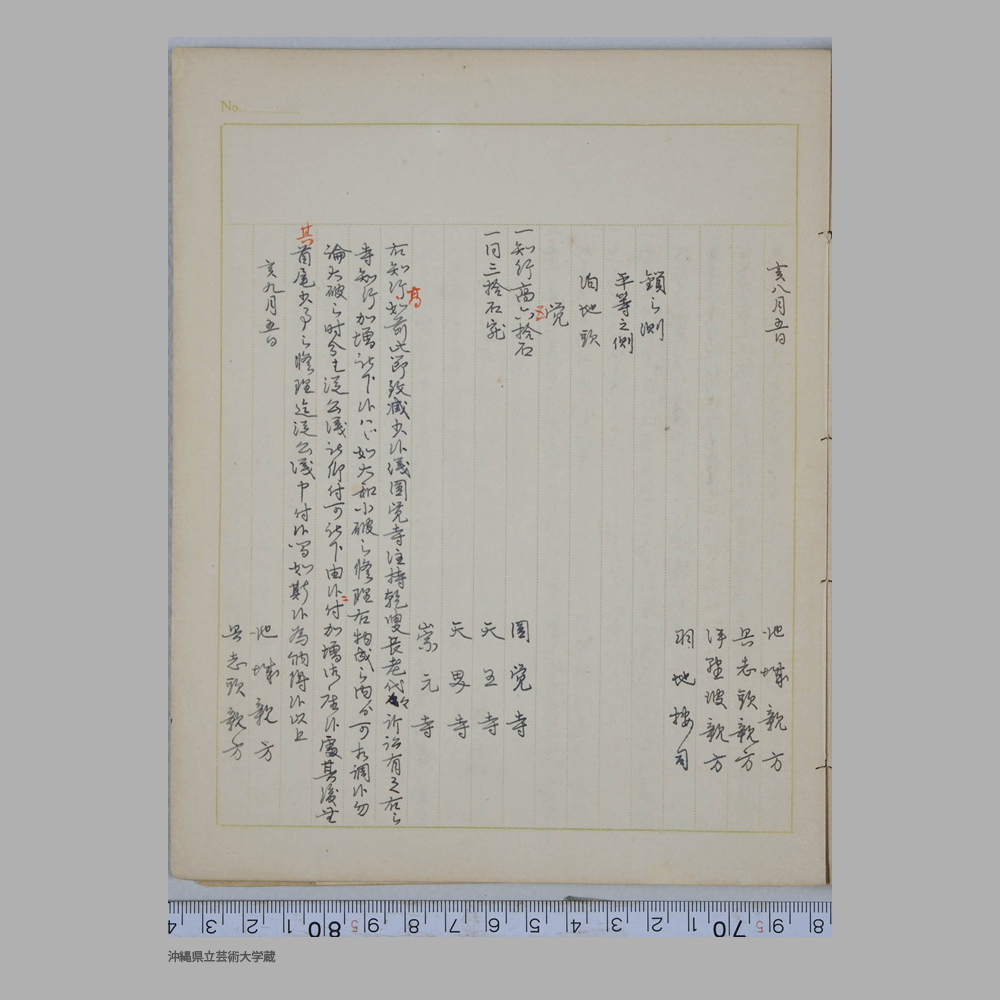 No.
亥八月五日
池城親方
具志頭親方
伊野波親方
羽地按司
鎖之側
平等之側
泊地頭
覚
一知行高六拾石
五
圓覚寺
一同三拾石宛
天王寺
天界寺
崇元寺
右知行高如前此節致減少候儀圓覚寺住持乾叟長老代々訴訟有之右之
寺知行加増被下候ハヽ如大和小破之修理右物成之内ゟ可相調候勿
論大破之時分ハ従公儀被仰付可被下由候付加増為仕候處其後無
其首尾少事之修理迄従公儀申付候間如斯候為納得候以上
亥九月五日
池城親方
具志頭親方
8 5 2 70 1 2 3 4 5 6 7 8 9 5 80 1 2 3 4
沖縄県立芸術大学蔵